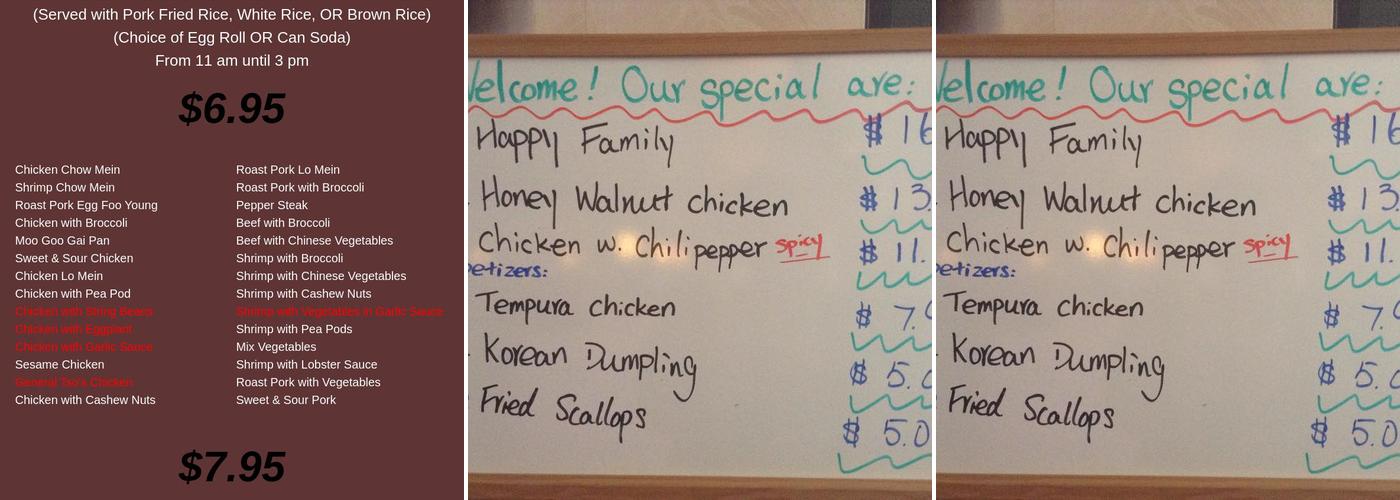 (Served with Pork Fried Rice, White Rice, OR Brown Rice)
(Choice of Egg Roll OR Can Soda)
From 11 am until 3 pm
$6.95
Chicken Chow Mein
Shrimp Chow Mein
Roast Pork Egg Foo Young
Chicken with Broccoli
Moo Goo Gai Pan
Sweet & Sour Chicken
Chicken Lo Mein
Chicken with Pea Pod
Chicken with String Beans
Chicken with Eggplant
Chicken with Garlic Sauce
Sesame Chicken
General Tso's Chicken
Chicken with Cashew Nuts
Roast Pork Lo Mein
Roast Pork with Broccoli
Pepper Steak
Beef with Broccoli
Beef with Chinese Vegetables
Shrimp with Broccoli
Shrimp with Chinese Vegetables
Shrimp with Cashew Nuts
Shrimp with Vegetables in Garlic Sauce
Shrimp with Pea Pods
Mix Vegetables
Shrimp with Lobster Sauce
Roast Pork with Vegetables
Sweet & Sour Pork
$7.95
Welcome! Our special are:
Happy Family $ 16
Honey Walnut chicken $ 13.
Chicken w. Chili pepper spicy $ 11.
petizers:
Tempura chicken $ 7.0
Korean Dumpling $ 5.0
Fried Scallops $ 5.0
Welcome! Our special are:
Happy Family $ 16
Honey Walnut chicken $ 13.
Chicken w. Chili pepper spicy $ 11.
petizers:
Tempura chicken $ 7.0
Korean Dumpling $ 5.0
Fried Scallops $ 5.0